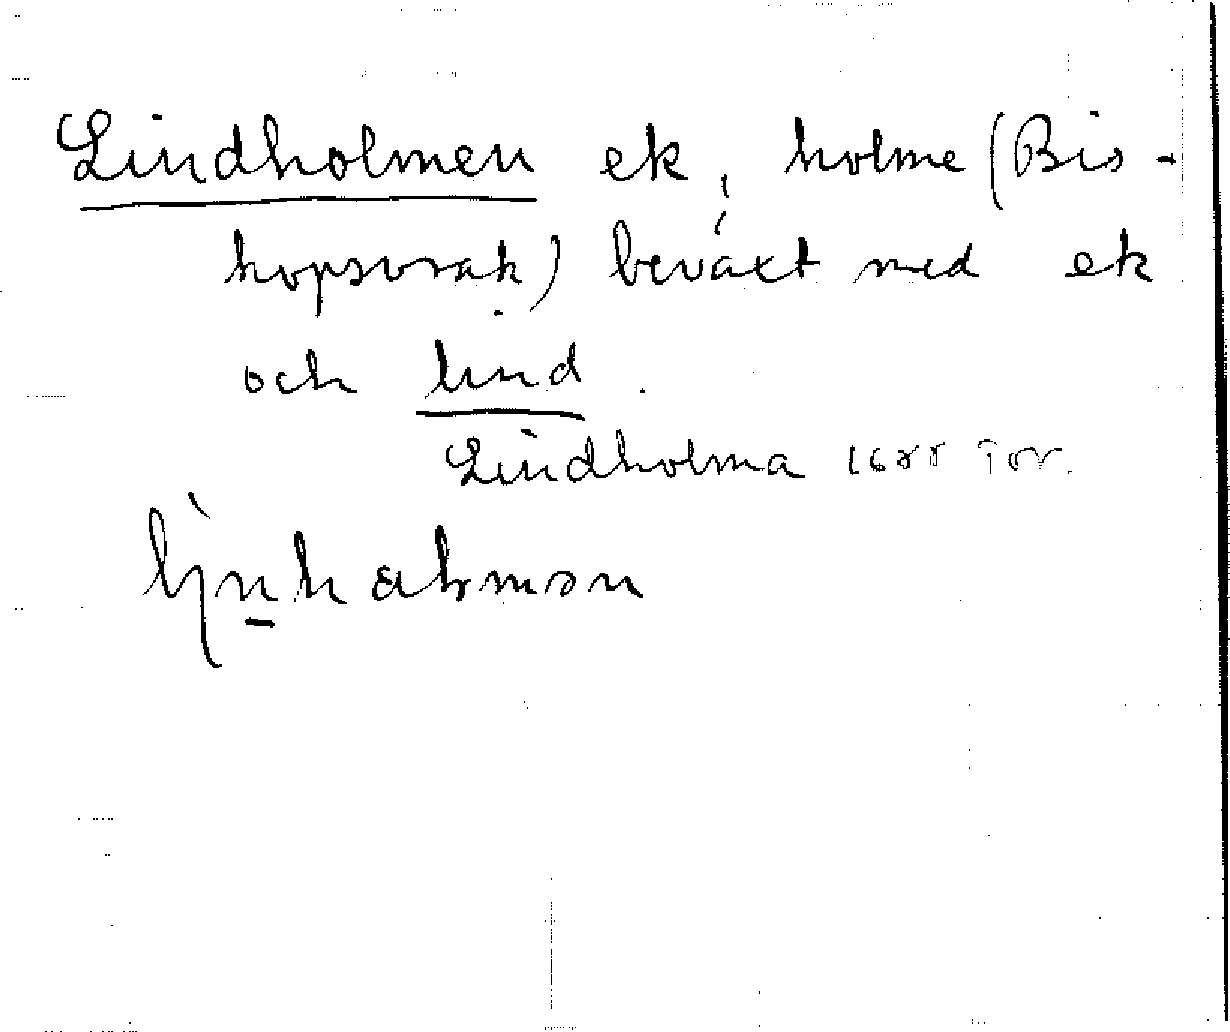 Lindholmen ek, holme (Bis-
kopsvrak) beväxt med ek
och lind.
Lindholma 1688 Tor.